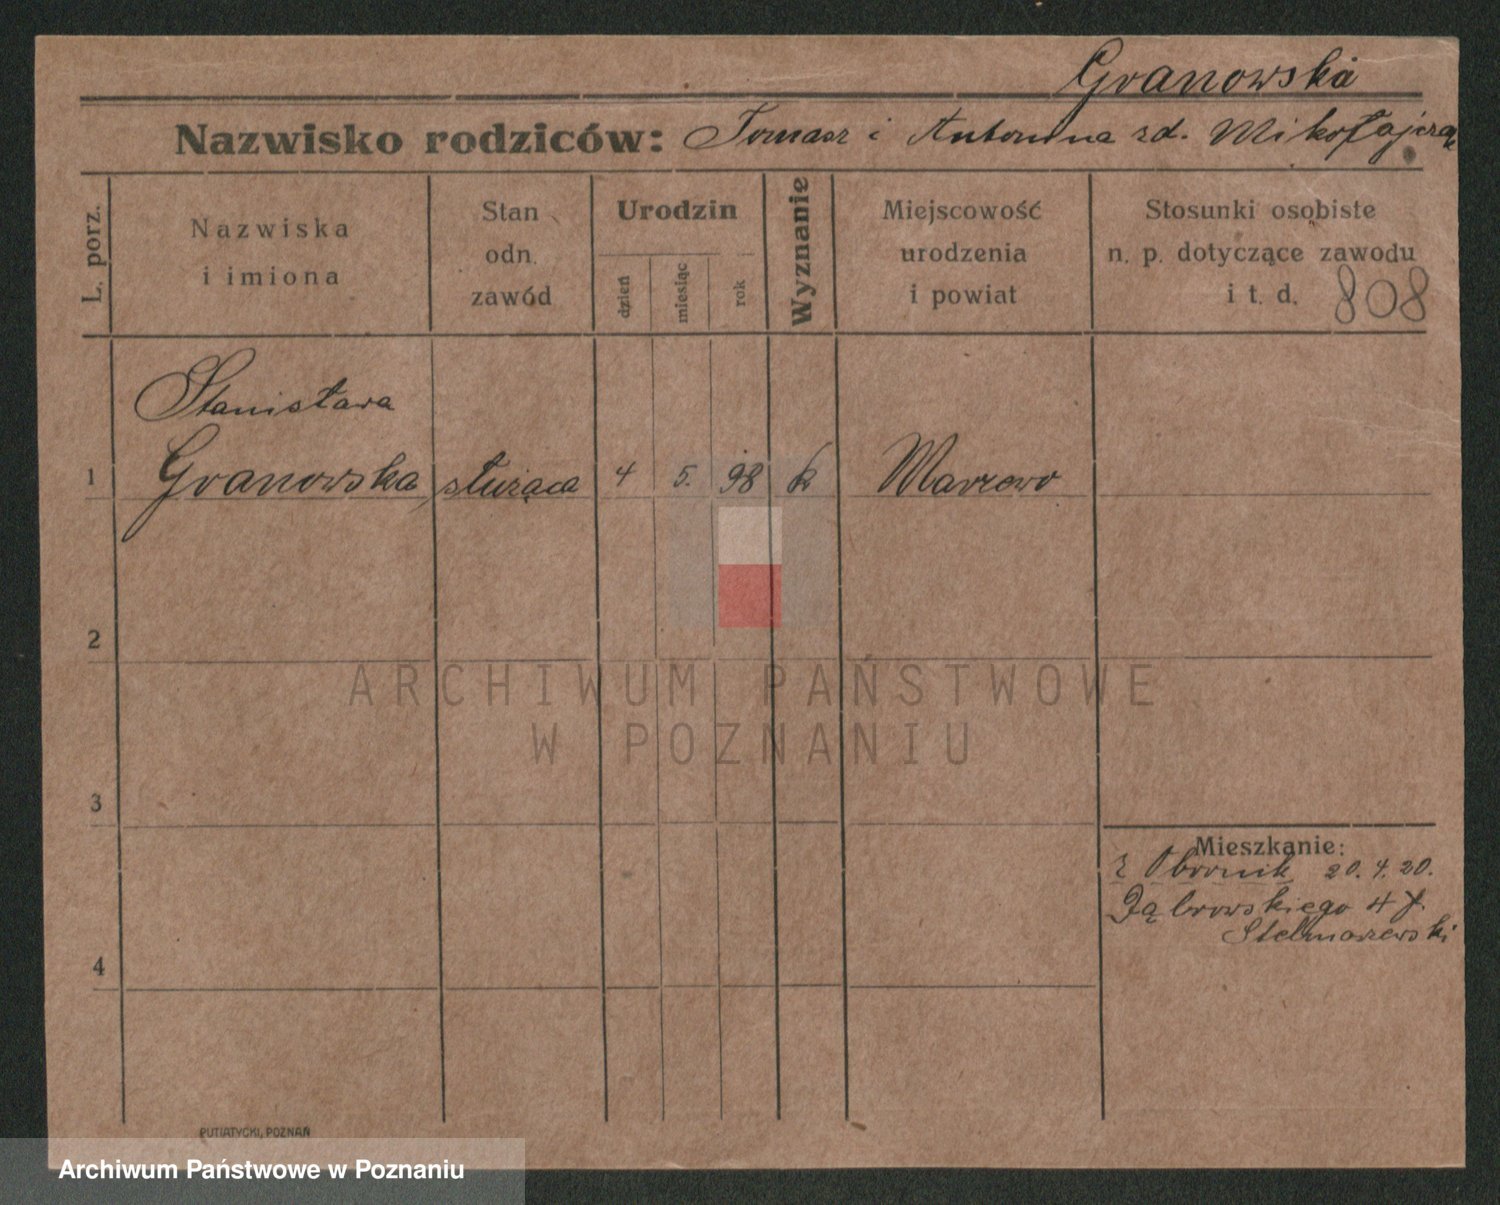 Granowska
Nazwisko rodziców: Tomasz i Antonina zd. Mikołajczak
L. porz.
Nazwiska
i imiona
Stan
odn.
zawód
Urodzin
dzień
miesiąc
rok
Wyznanie
Miejscowość
urodzenia
i powiat
Stosunki osobiste
n. p. dotyczące zawodu
i t. d.
808
Stanisława
1 Granowska służąca 4 5. 98 k Marzewo
2
ARCHIWUM PAŃSTWOWE
W POZNANIU
3
Mieszkanie:
z Obornik 20.4.20.
Dąbrowskiego
Stelmaszewski
4
PUTIATYCKI, POZNAŃ
Archiwum Państwowe w Poznaniu